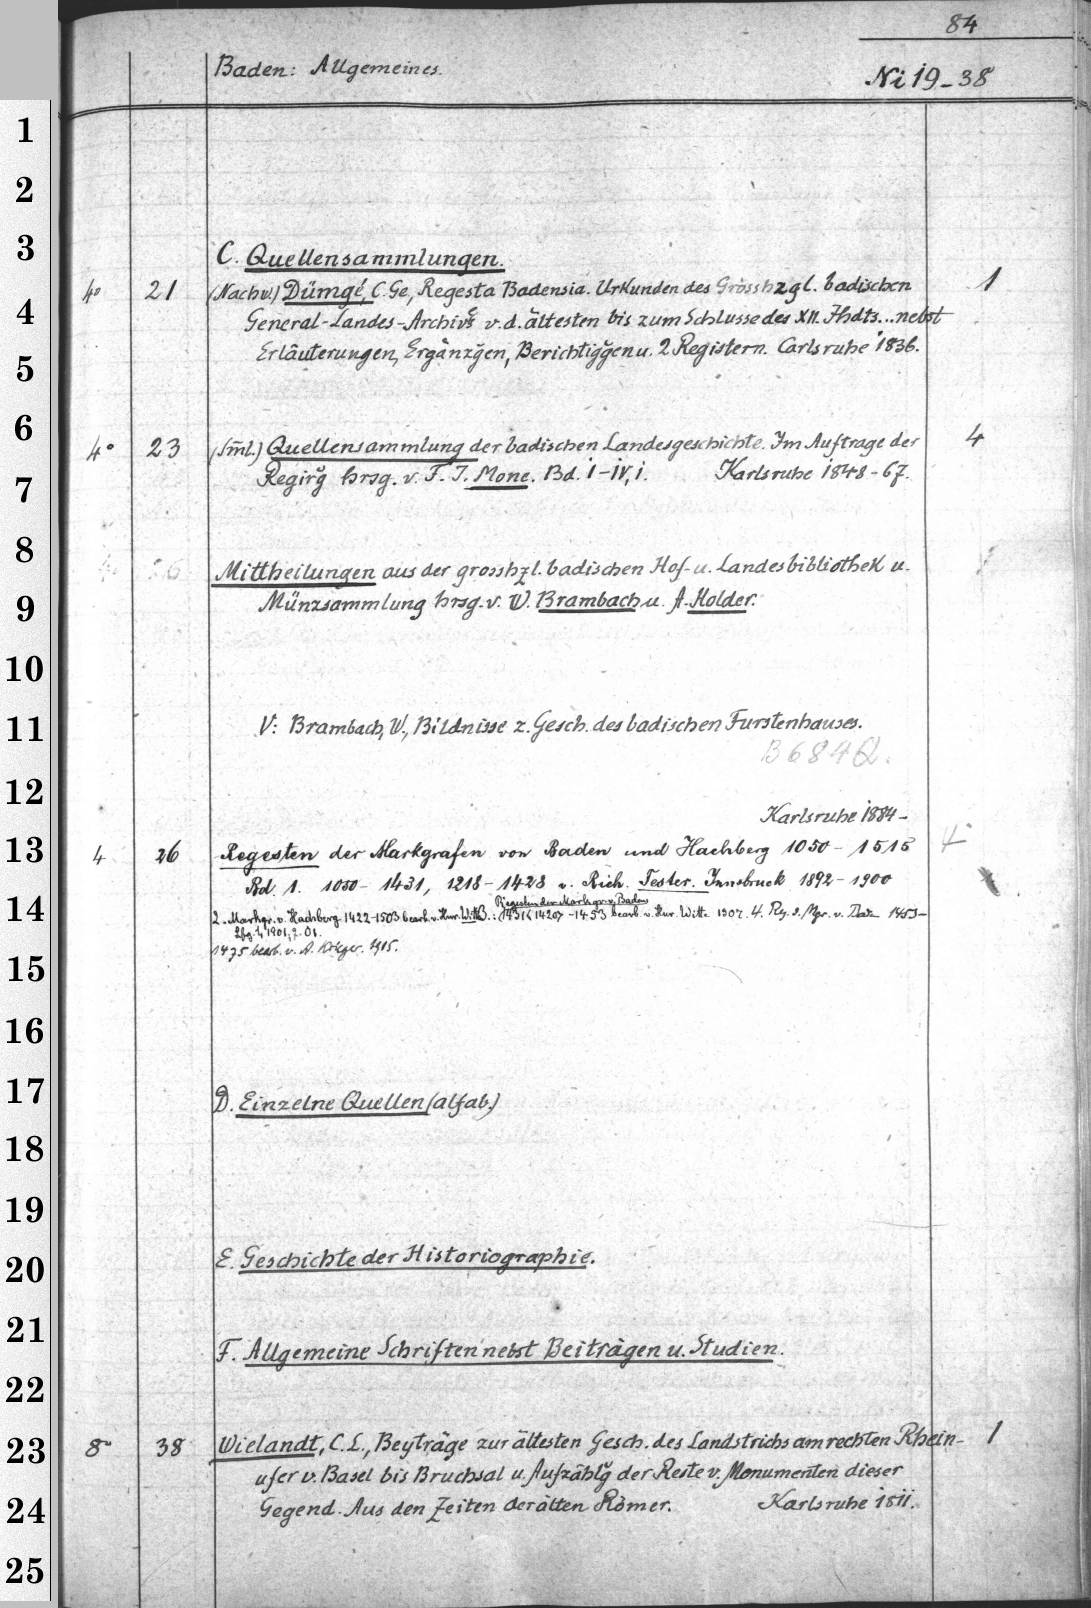 84
Baden: Allgemeines.
Ni 19-38
C. Quellensammlungen.
4° 21 (Nachw.) Dümgé, C. Ge, Regesta Badensia. Urkunden des Grosshzgl. badischen 1
General-Landes-Archivs v. d. ältesten bis zum Schlusse des XII. Jhdts... nebst
Erläuterungen, Ergänzgen, Berichtiggen u. 2 Registern. Carlsruhe 1836.
4° 23 (Sml.) Quellensammlung der badischen Landesgeschichte. Im Auftrage der 4
Regirg hrsg. v. F. J. Mone. Bd. I-IV, 1. Karlsruhe 1848-67.
Mittheilungen aus der grosshzl. badischen Hof- u. Landesbibliothek u.
Münzsammlung hrsg. v. W. Brambach u. A. Holder.
V: Brambach, W., Bildnisse z. Gesch. des badischen Furstenhauses.
B 684 Q.
Karlsruhe 1884-
4 26 Regesten der Markgrafen von Baden und Hachberg 1050-1515 4
Bd. 1. 1050-1431, 1218-1428 v. Rich. Fester. Innsbruck 1892-1900
Regesten der Markgr. v. Baden
2. Markgr. v. Hachberg 1422-1503 bearb. v. Hnr. Witte. 1431 (1420)-1453 bearb. v. Hnr. Witte 1907. 4. Reg. d. Mgr. v. Baden 1453-
Lfg. 1, 1901, 2. 01.
1475 bearb. v. A. Krieger. 1915.
D. Einzelne Quellen (alfab.)
E. Geschichte der Historiographie.
F. Allgemeine Schriften nebst Beiträgen u. Studien.
8° 38 Wielandt, C. L., Beyträge zur ältesten Gesch. des Landstrichs am rechten Rhein- 1
ufer v. Basel bis Bruchsal u. Aufzählg der Reste v. Monumenten dieser
Gegend. Aus den Zeiten der alten Römer. Karlsruhe 1811.
1
2
3
4
5
6
7
8
9
10
11
12
13
14
15
16
17
18
19
20
21
22
23
24
25